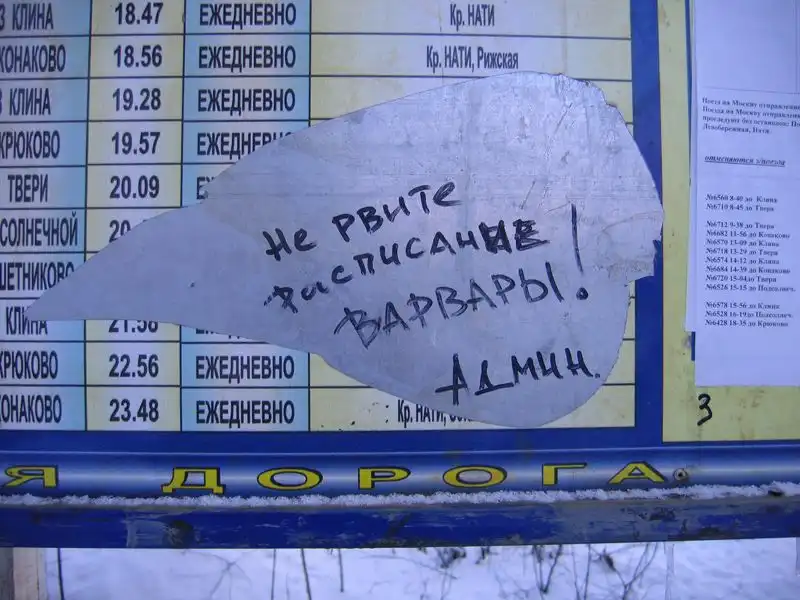 З КЛИНА 18.47 ЕЖЕДНЕВНО Кр. НАТИ
КОНАКОВО 18.56 ЕЖЕДНЕВНО Кр. НАТИ, Рижская
З КЛИНА 19.28 ЕЖЕДНЕВНО
КРЮКОВО 19.57 ЕЖЕДНЕВНО
ТВЕРИ 20.09
СОЛНЕЧНОЙ 20.
ШЕТНИКОВО
КЛИНА 21.58
КРЮКОВО 22.56 ЕЖЕДНЕВНО
КОНАКОВО 23.48 ЕЖЕДНЕВНО Кр. НАТИ,
Не РВИТЕ
РАСПИСАНИЕ
ВАРВАРЫ!
АДМИН.
Я ДОРОГА
Поезда на Москву отправления
Поезда на Москву отправления
проследуют без остановок: По
Левобережная, Нати.
отменяются э/поезда
№6560 8-40 до Клина
№6710 8-45 до Твери
№6712 9-38 до Твери
№6682 11-56 до Конаково
№6570 13-09 до Клина
№6718 13-29 до Твери
№6574 14-12 до Клина
№6684 14-39 до Конаково
№6720 15-04до Твери
№6526 15-15 до Подсолнеч.
№6578 15-56 до Клина
№6528 16-19до Подсолнеч.
№6428 18-35 до Крюково
3